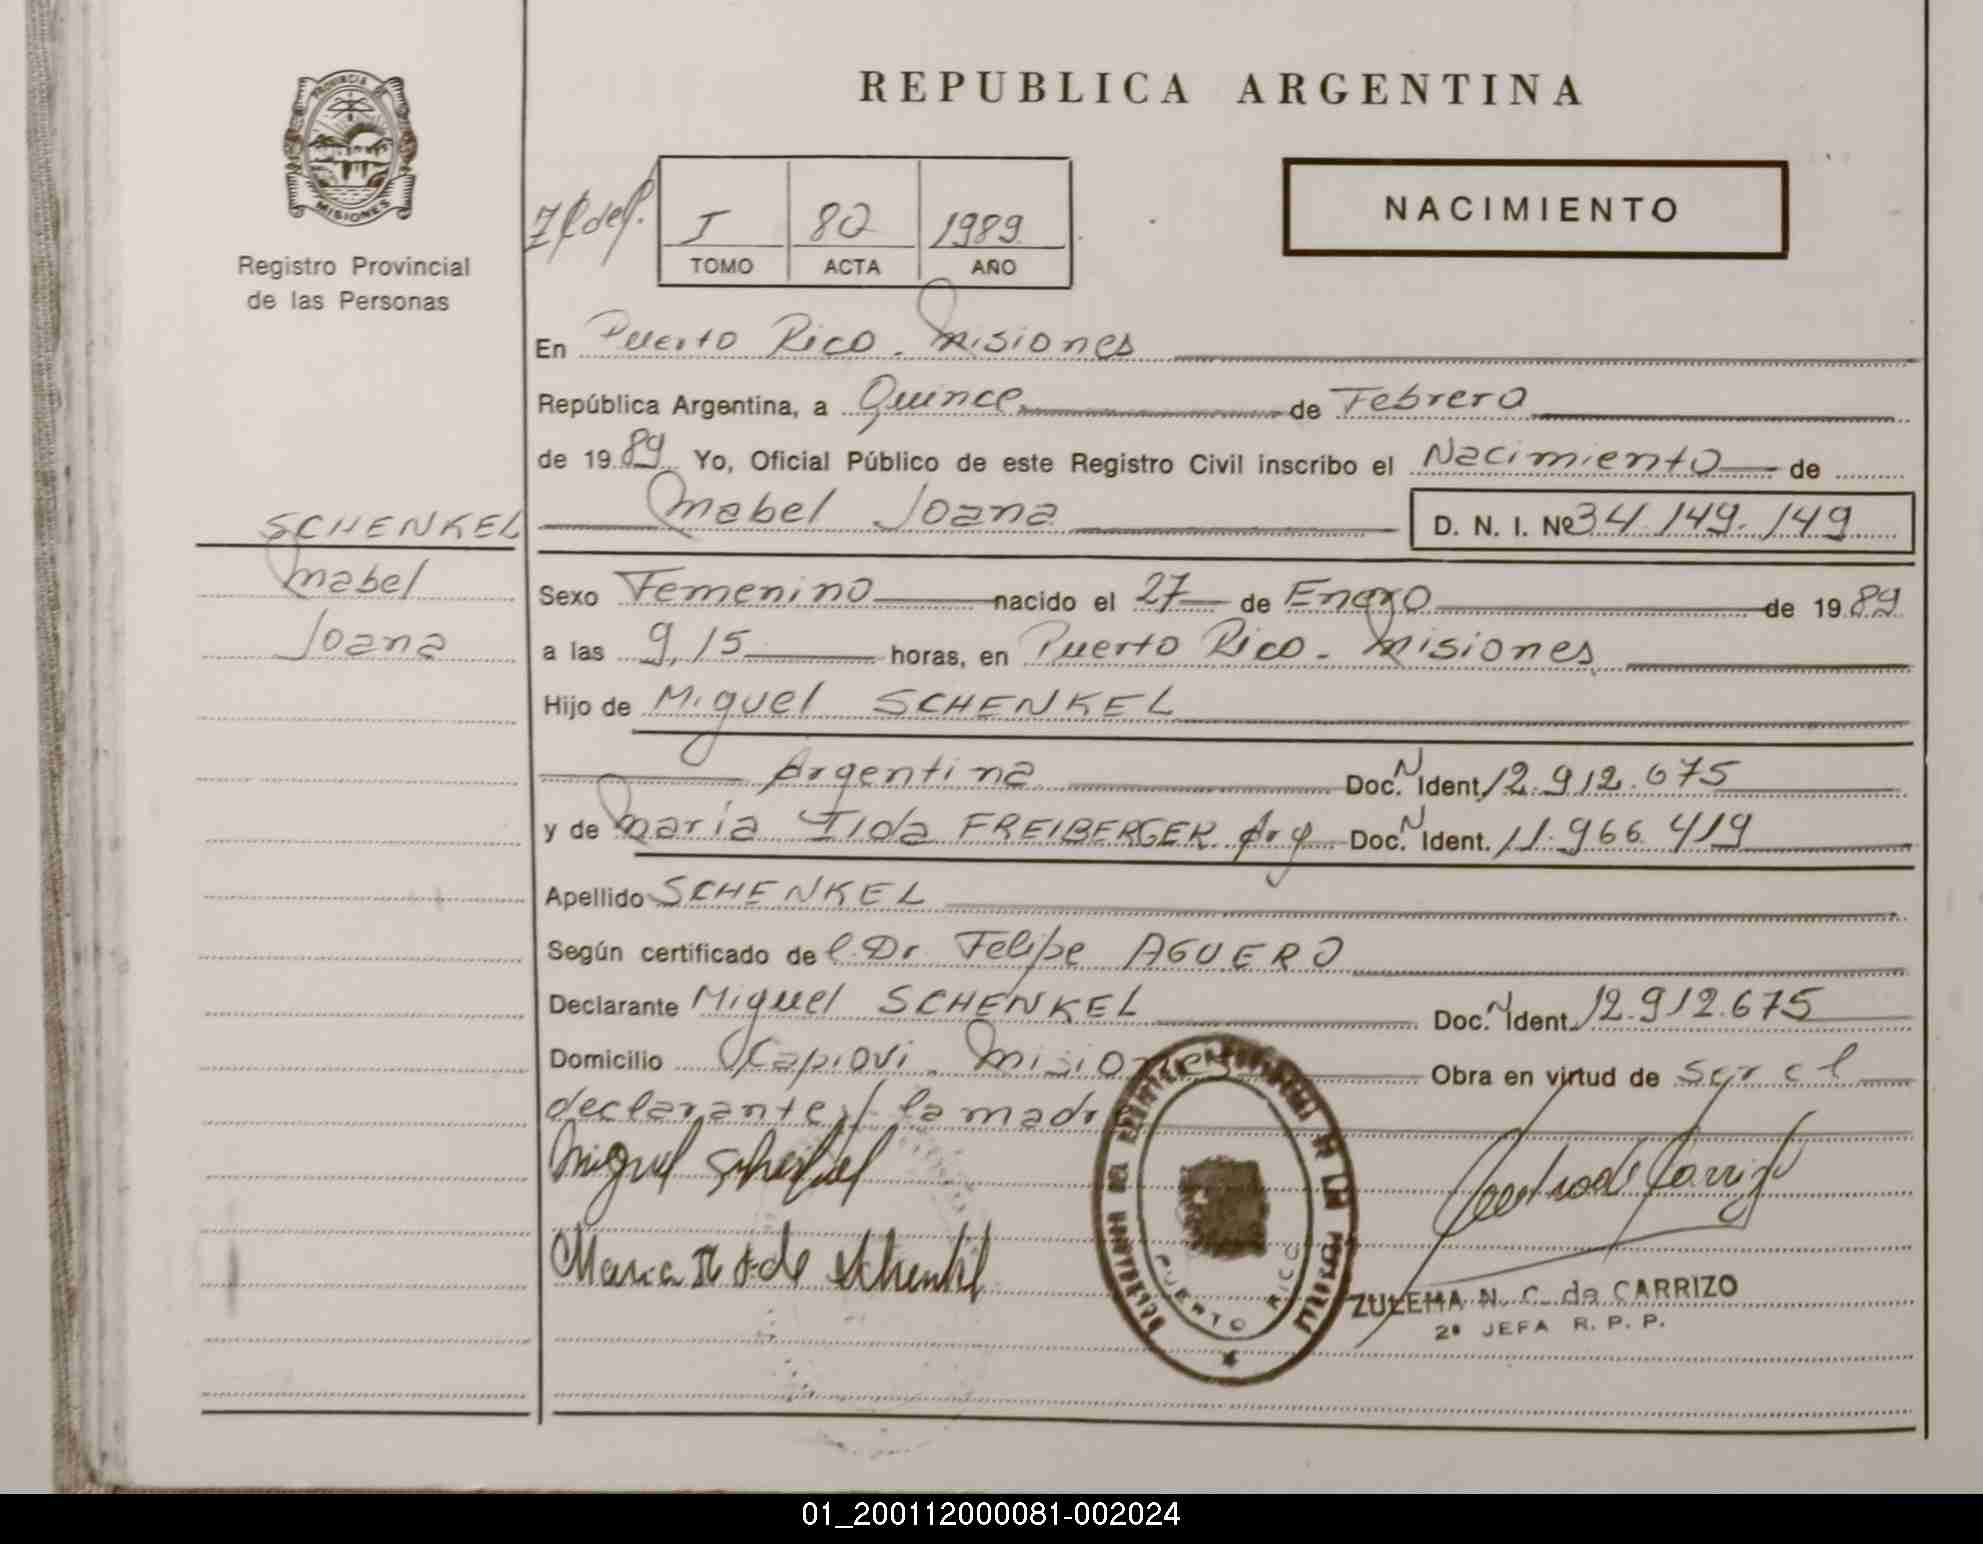 PROVINCIA DE
MISIONES
Registro Provincial
de las Personas
REPUBLICA ARGENTINA
I 80 1989
TOMO ACTA AÑO
NACIMIENTO
En Puerto Rico. Misiones
República Argentina, a Quince de Febrero
de 1989 Yo, Oficial Público de este Registro Civil inscribo el Nacimiento de
Mabel Joana D. N. I. Nº 34.149.149
SCHENKEL
Mabel
Joana
Sexo Femenino nacido el 27 de Enero de 1989
a las 9,15 horas, en Puerto Rico. Misiones
Hijo de Miguel SCHENKEL
Argentina Doc. N Ident. 12.912.675
y de Maria Ilda FREIBERGER Arg Doc. N Ident. 11.966.419
Apellido SCHENKEL
Según certificado del Dr. Felipe AGUERO
Declarante Miguel SCHENKEL Doc. N Ident. 12.912.675
Domicilio Capiovi. Misiones Obra en virtud de ser el
declarante/ la madr
Miguel Schenkel
Maria de Schenkel
PUERTO RICO
ZULEMA N. C. de CARRIZO
2ª JEFA R. P. P.
01_200112000081-002024